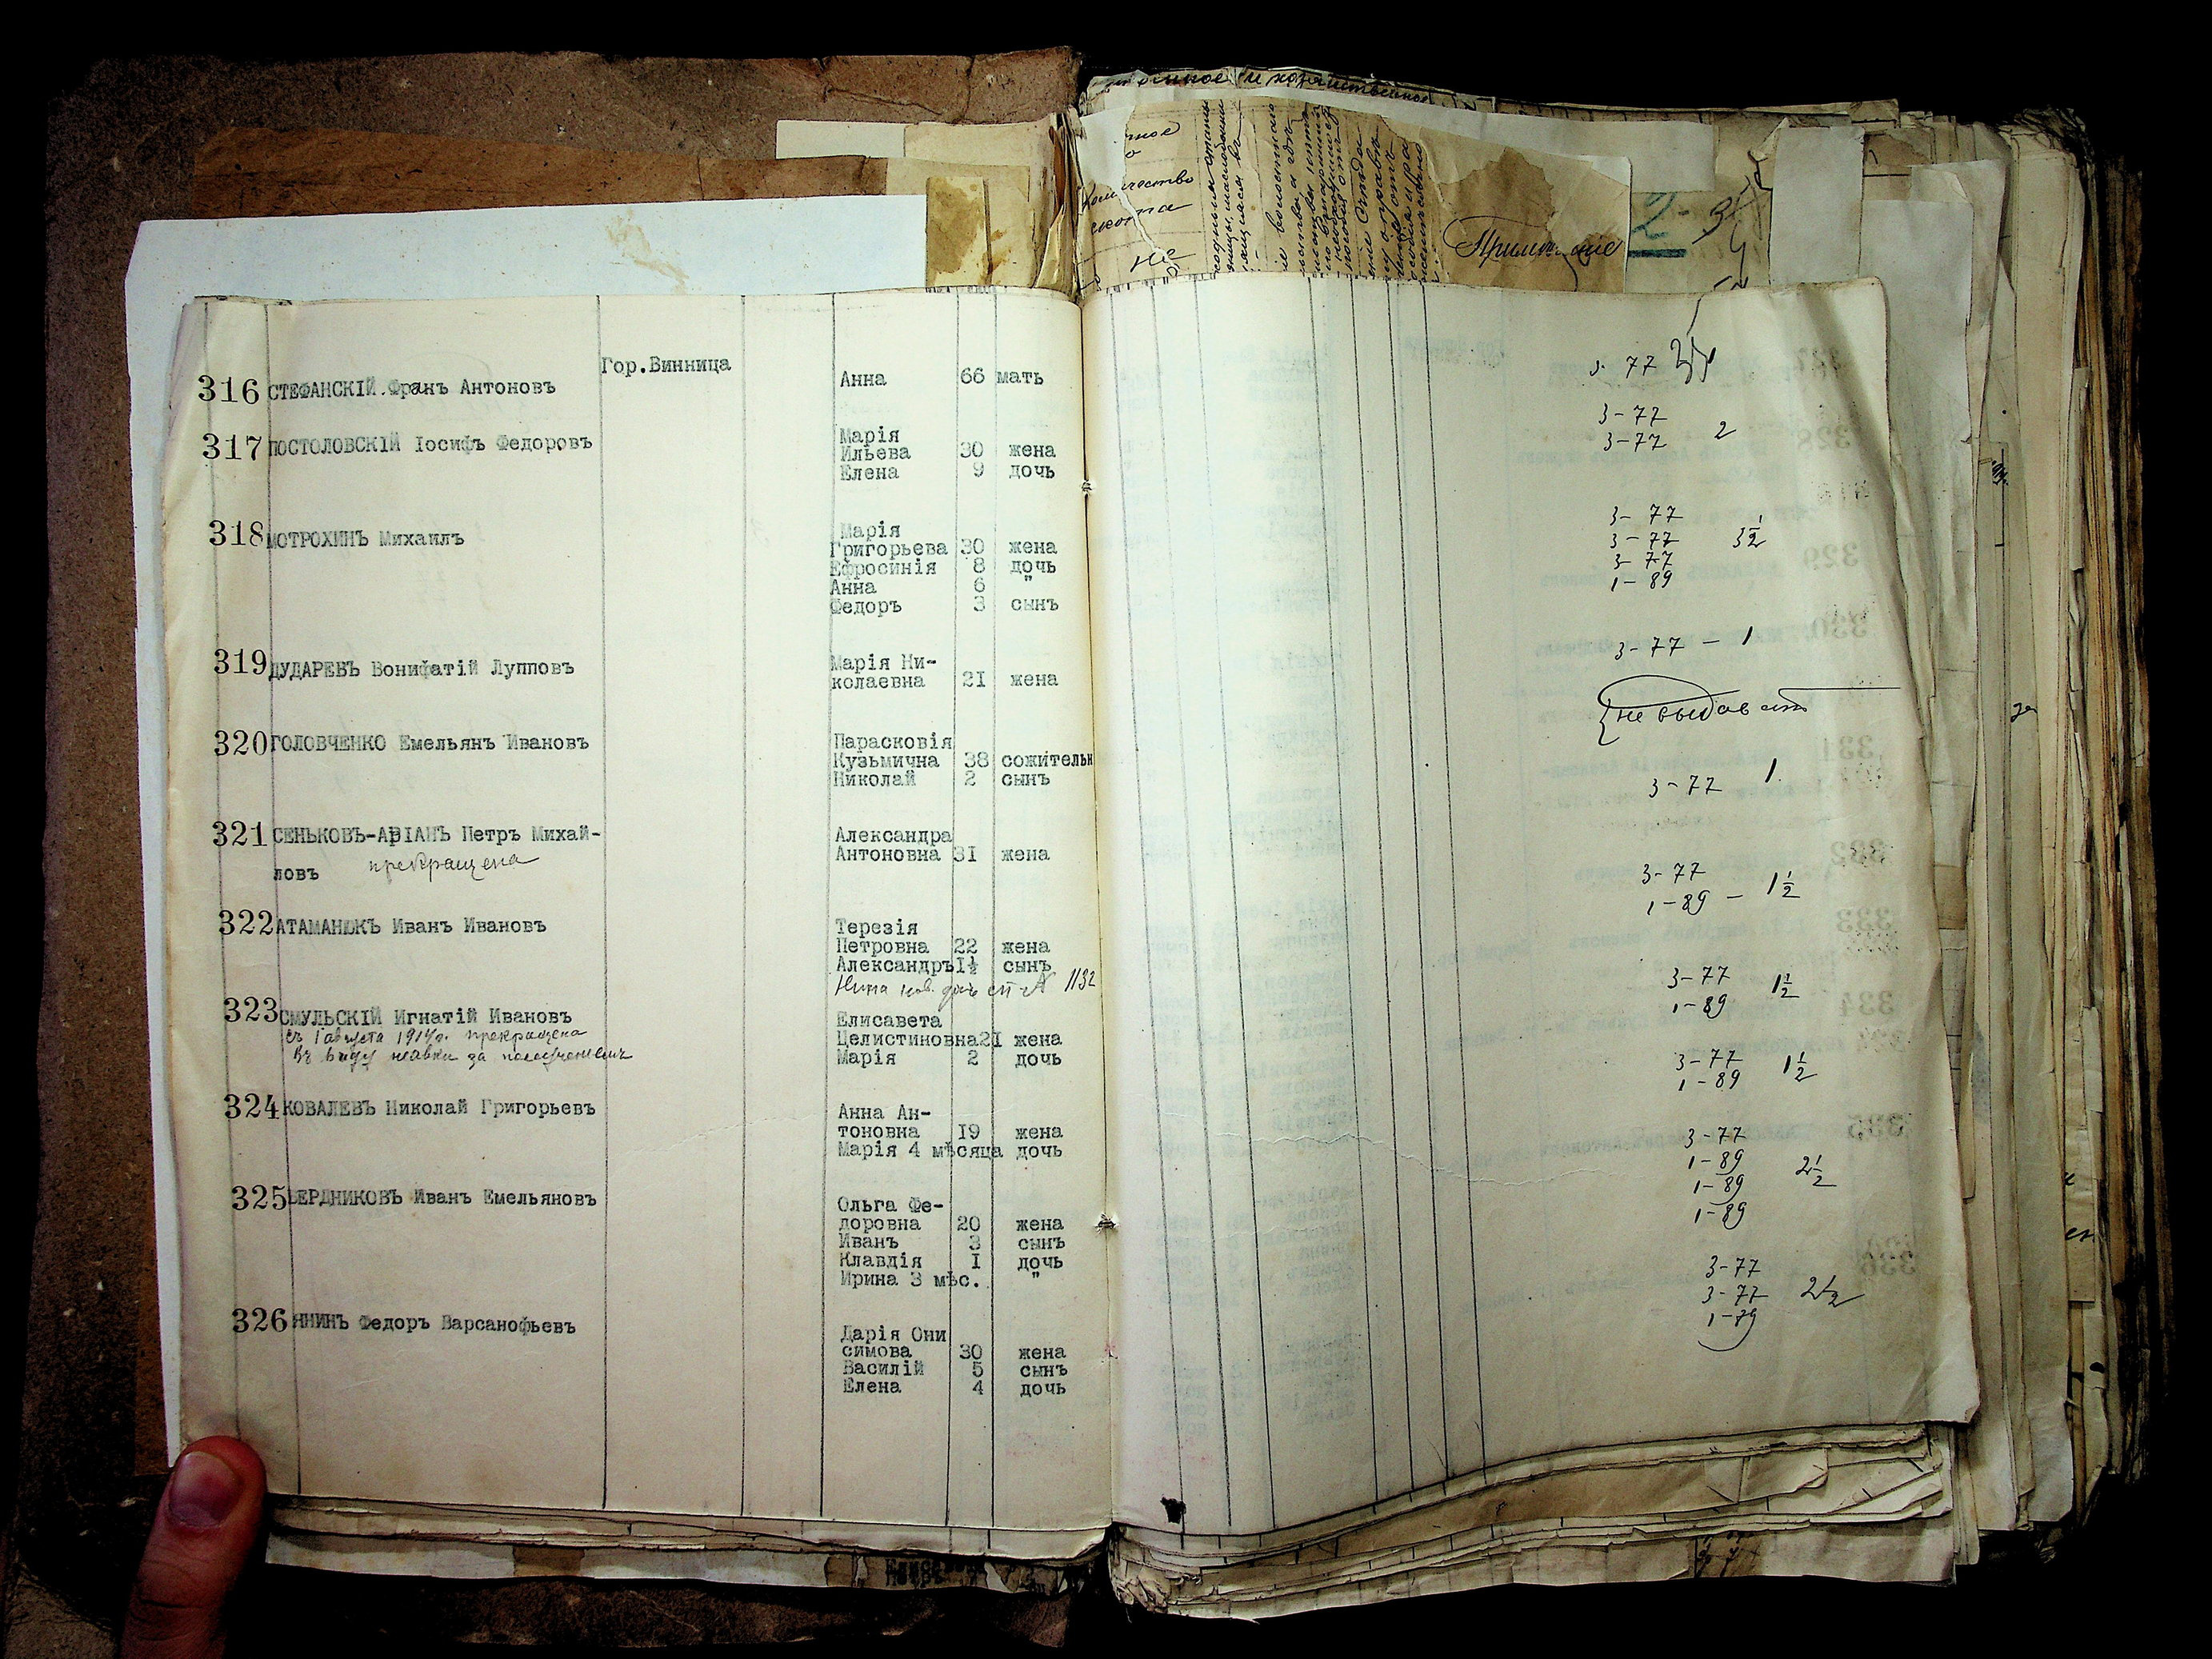 Примѣчаніе
2-
Гор.Винница
316 СТЕФАНСКІЙ.Франъ Антоновъ Анна 66 мать
317 ПОСТОЛОВСКІЙ Іосифъ Федоровъ Марія
Ильева 30 жена
Елена 9 дочь
318 МОТРОХИНЪ Михаилъ Марія
Григорьева 30 жена
Ефросинія 8 дочь
Анна 6 "
Федоръ 3 сынъ
319 ДУДАРЕВЪ Вонифатій Лупповъ Марія Ни-
колаевна 21 жена
320 ГОЛОВЧЕНКО Емельянъ Ивановъ Парасковія
Кузьмична 38 сожительн
Николай 2 сынъ
321 СЕНЬКОВЪ-АРІАНЪ Петръ Михай- Александра
ловъ прекращена Антоновна 31 жена
322 АТАМАНЮКЪ Иванъ Ивановъ Терезія
Петровна 22 жена
Александръ 1½ сынъ
Нина 1132
323 СМУЛЬСКІЙ Игнатій Ивановъ Елисавета
съ 1 августа 1914 г. прекращена Целистиновна 21 жена
Въ виду неявки за полученіемъ Марія 2 дочь
324 КОВАЛЕВЪ Николай Григорьевъ Анна Ан-
тоновна 19 жена
Марія 4 мѣсяца дочь
325 БЕРДНИКОВЪ Иванъ Емельяновъ Ольга Фе-
доровна 20 жена
Иванъ 3 сынъ
Клавдія 1 дочь
Ирина 3 мѣс. "
326 ЯНИНЪ Федоръ Варсанофьевъ Дарія Они
симова 30 жена
Василій 5 сынъ
Елена 4 дочь
77
3-77
3-77 2
3-77
3-77 3½
3-77
1-89
3-77 - 1
не выдавать
3-77 1
3-77
1-89 - 1½
3-77
1-89 1½
3-77
1-89 1½
3-77
1-89
1-89 2½
1-89
3-77
3-77 2½
1-79